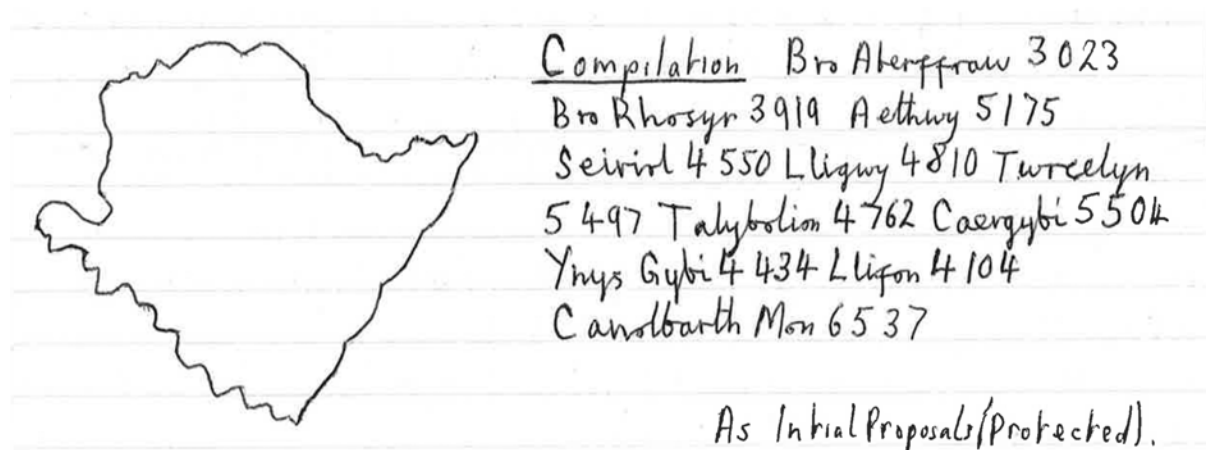 Compilation Bro Aberffraw 3023
Bro Rhosyr 3919 Aethwy 5175
Seiriol 4550 Lligwy 4810 Twrcelyn
5497 Talybolion 4762 Caergybi 5504
Ynys Gybi 4434 Llifon 4104
Canolbarth Mon 6537
As Initial Proposals (Protected).